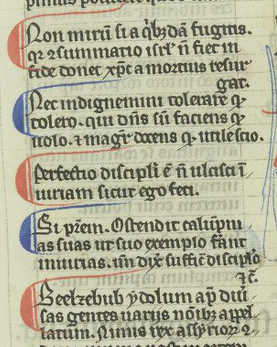 Non mirū si a qͥbzdā fugitis.
qꝛ ꝯsummatio isrl̓ n̄ fiet in
fide donec xp̄c a mortuis resur
gat.
Nec indignemini tolerare qͩ
tolero. qui dn̄s sū faciens qͩ
uolo. ⁊ magr̄ docens qͩ utile scio.
Perfectio discipli ē n̄ ulcisci ī
iuriam sicut ego feci.
Si pr̄em. Ostendit calūpni
as suas ut suo exemplo ferāt
iniurias. un̄ dix̄ sufficit discipulo
⁊c̄.
Beelzebub ydolum ap̄ diu̓
sas gentes uariis noībꝫ appel
latum. Ninus rex assyrioꝝ